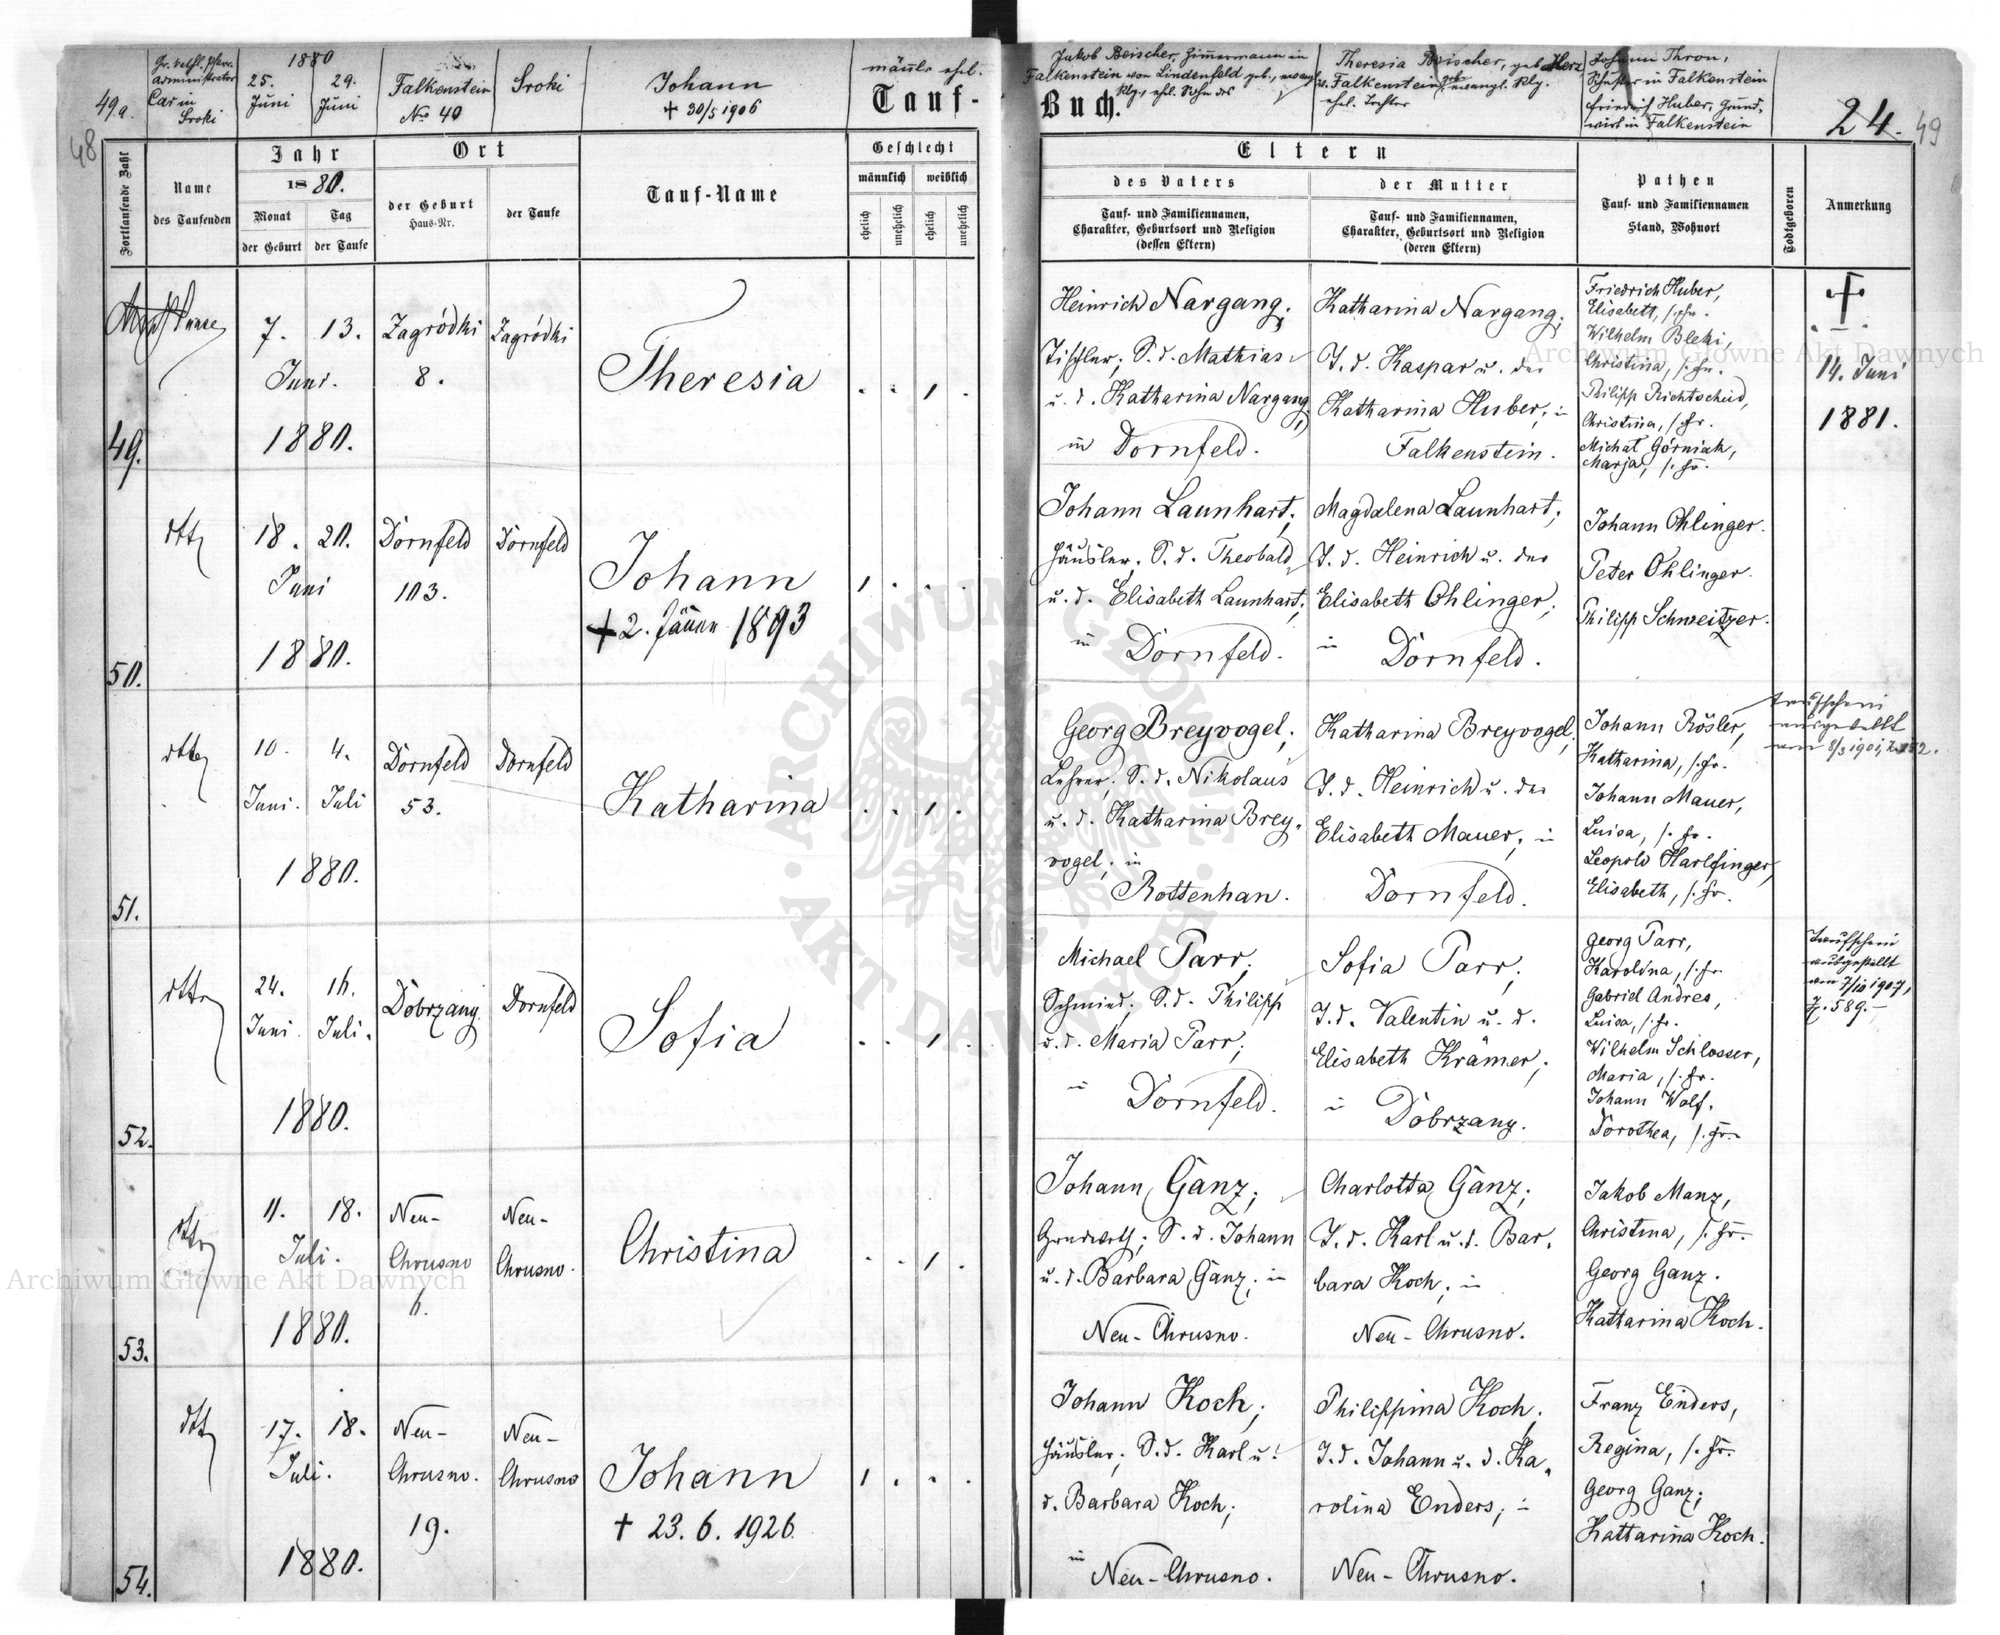 49a.
Gr. kathl. Pfarr-
administrator
Car in
Sroki
1880
25. 29.
Juni Juni
Falkenstein
No 40
Sroki
Johann
+ 30/5 1906
männl. ehel.
Tauf-
Jakob Beischer, Zimmermann in
Falkenstein von Lindenfeld geb., evang.
Rlg., ehel. Sohn des
Buch.
Theresia Beischer, geb. Herz
Falkenstein evangl. Rlg.
ehel. Tochter
Johann Thron,
Schuster in Falkenstein
Friedrich Huber, Grund-
wirt in Falkenstein
24. 49
48
Fortlaufende Zahl
Name
des Taufenden
Jahr
1880.
Monat Tag
der Geburt der Taufe
Ort
der Geburt
Haus-Nr.
der Taufe
Tauf-Name
Geschlecht
männlich weiblich
ehelich unehelich ehelich unehelich
Eltern
des Vaters
Tauf- und Familiennamen,
Charakter, Geburtsort und Religion
(dessen Eltern)
der Mutter
Tauf- und Familiennamen,
Charakter, Geburtsort und Religion
(deren Eltern)
Pathen
Tauf- und Familiennamen
Stand, Wohnort
Todtgeboren
Anmerkung
49.
7. 13.
Juni.
1880.
Zagródki
8.
Zagródki
Theresia
Heinrich Nargang;
Tischler; S. d. Mathias
u. d. Katharina Nargang;
in Dornfeld.
Katharina Nargang;
T. d. Kaspar u. der
Katharina Huber; in
Falkenstein.
Friedrich Huber,
Elisabeth, s. Fr.
Wilhelm Bleki,
Christina, s. Fr.
Philipp Richtscheid,
Christina, s. Fr.
Michał Górniak,
Marja, s. Fr.
14. Juni
1881.
50.
dtto
18. 20.
Juni
1880.
Dornfeld
103.
Dornfeld
Johann
+ 2. Jänner 1893
Johann Launhart;
Häusler; S. d. Theobald
u. d. Elisabeth Launhart;
in Dornfeld.
Magdalena Launhart;
T. d. Heinrich u. der
Elisabeth Ohlinger;
in Dornfeld.
Johann Ohlinger.
Peter Ohlinger.
Philipp Schweitzer.
51.
dtto
10. 4.
Juni. Juli
1880.
Dornfeld
53.
Dornfeld
Katharina
Georg Breyvogel;
Lehrer; S. d. Nikolaus
u. d. Katharina Brey-
vogel; in
Rottenhan.
Katharina Breyvogel;
T. d. Heinrich u. der
Elisabeth Mauer; in
Dornfeld.
Johann Rösler,
Katharina, s. Fr.
Johann Mauer,
Luisa, s. Fr.
Leopold Harlfinger,
Elisabeth, s. Fr.
Taufschein
ausgestellt
am 8/3 1901, Z. 152.
52.
dtto
24. 14.
Juni. Juli.
1880.
Dobrzany
Dornfeld
Sofia
Michael Parr;
Schmied; S. d. Philipp
u. d. Maria Parr;
in Dornfeld.
Sofia Parr;
T. d. Valentin u. d.
Elisabeth Krämer;
in Dobrzany.
Georg Parr,
Karolina, s. Fr.
Gabriel Andres,
Luisa, s. Fr.
Wilhelm Schlosser,
Maria, s. Fr.
Johann Wolf.
Dorothea, s. Fr.
Taufschein
ausgestellt
am 7/10 1907,
Z. 589.-
53.
dtto
11. 18.
Juli.
1880.
Neu-
Chrusno
6.
Neu-
Chrusno.
Christina
Johann Ganz;
Grundwirth; S. d. Johann
u. d. Barbara Ganz; in
Neu-Chrusno.
Charlotta Ganz;
T. d. Karl u. d. Bar-
bara Koch; in
Neu-Chrusno.
Jakob Manz,
Christina, s. Fr.
Georg Ganz.
Katharina Koch.
54.
dtto
17. 18.
Juli.
1880.
Neu-
Chrusno.
19.
Neu-
Chrusno
Johann
+ 23. 6. 1926
Johann Koch;
Häusler; S. d. Karl u.
d. Barbara Koch;
in Neu-Chrusno.
Philippina Koch;
T. d. Johann u. d. Ka-
rolina Enders; in
Neu-Chrusno.
Franz Enders,
Regina, s. Fr.
Georg Ganz;
Kattarina Koch.
Archiwum Główne Akt Dawnych
Archiwum Główne Akt Dawnych